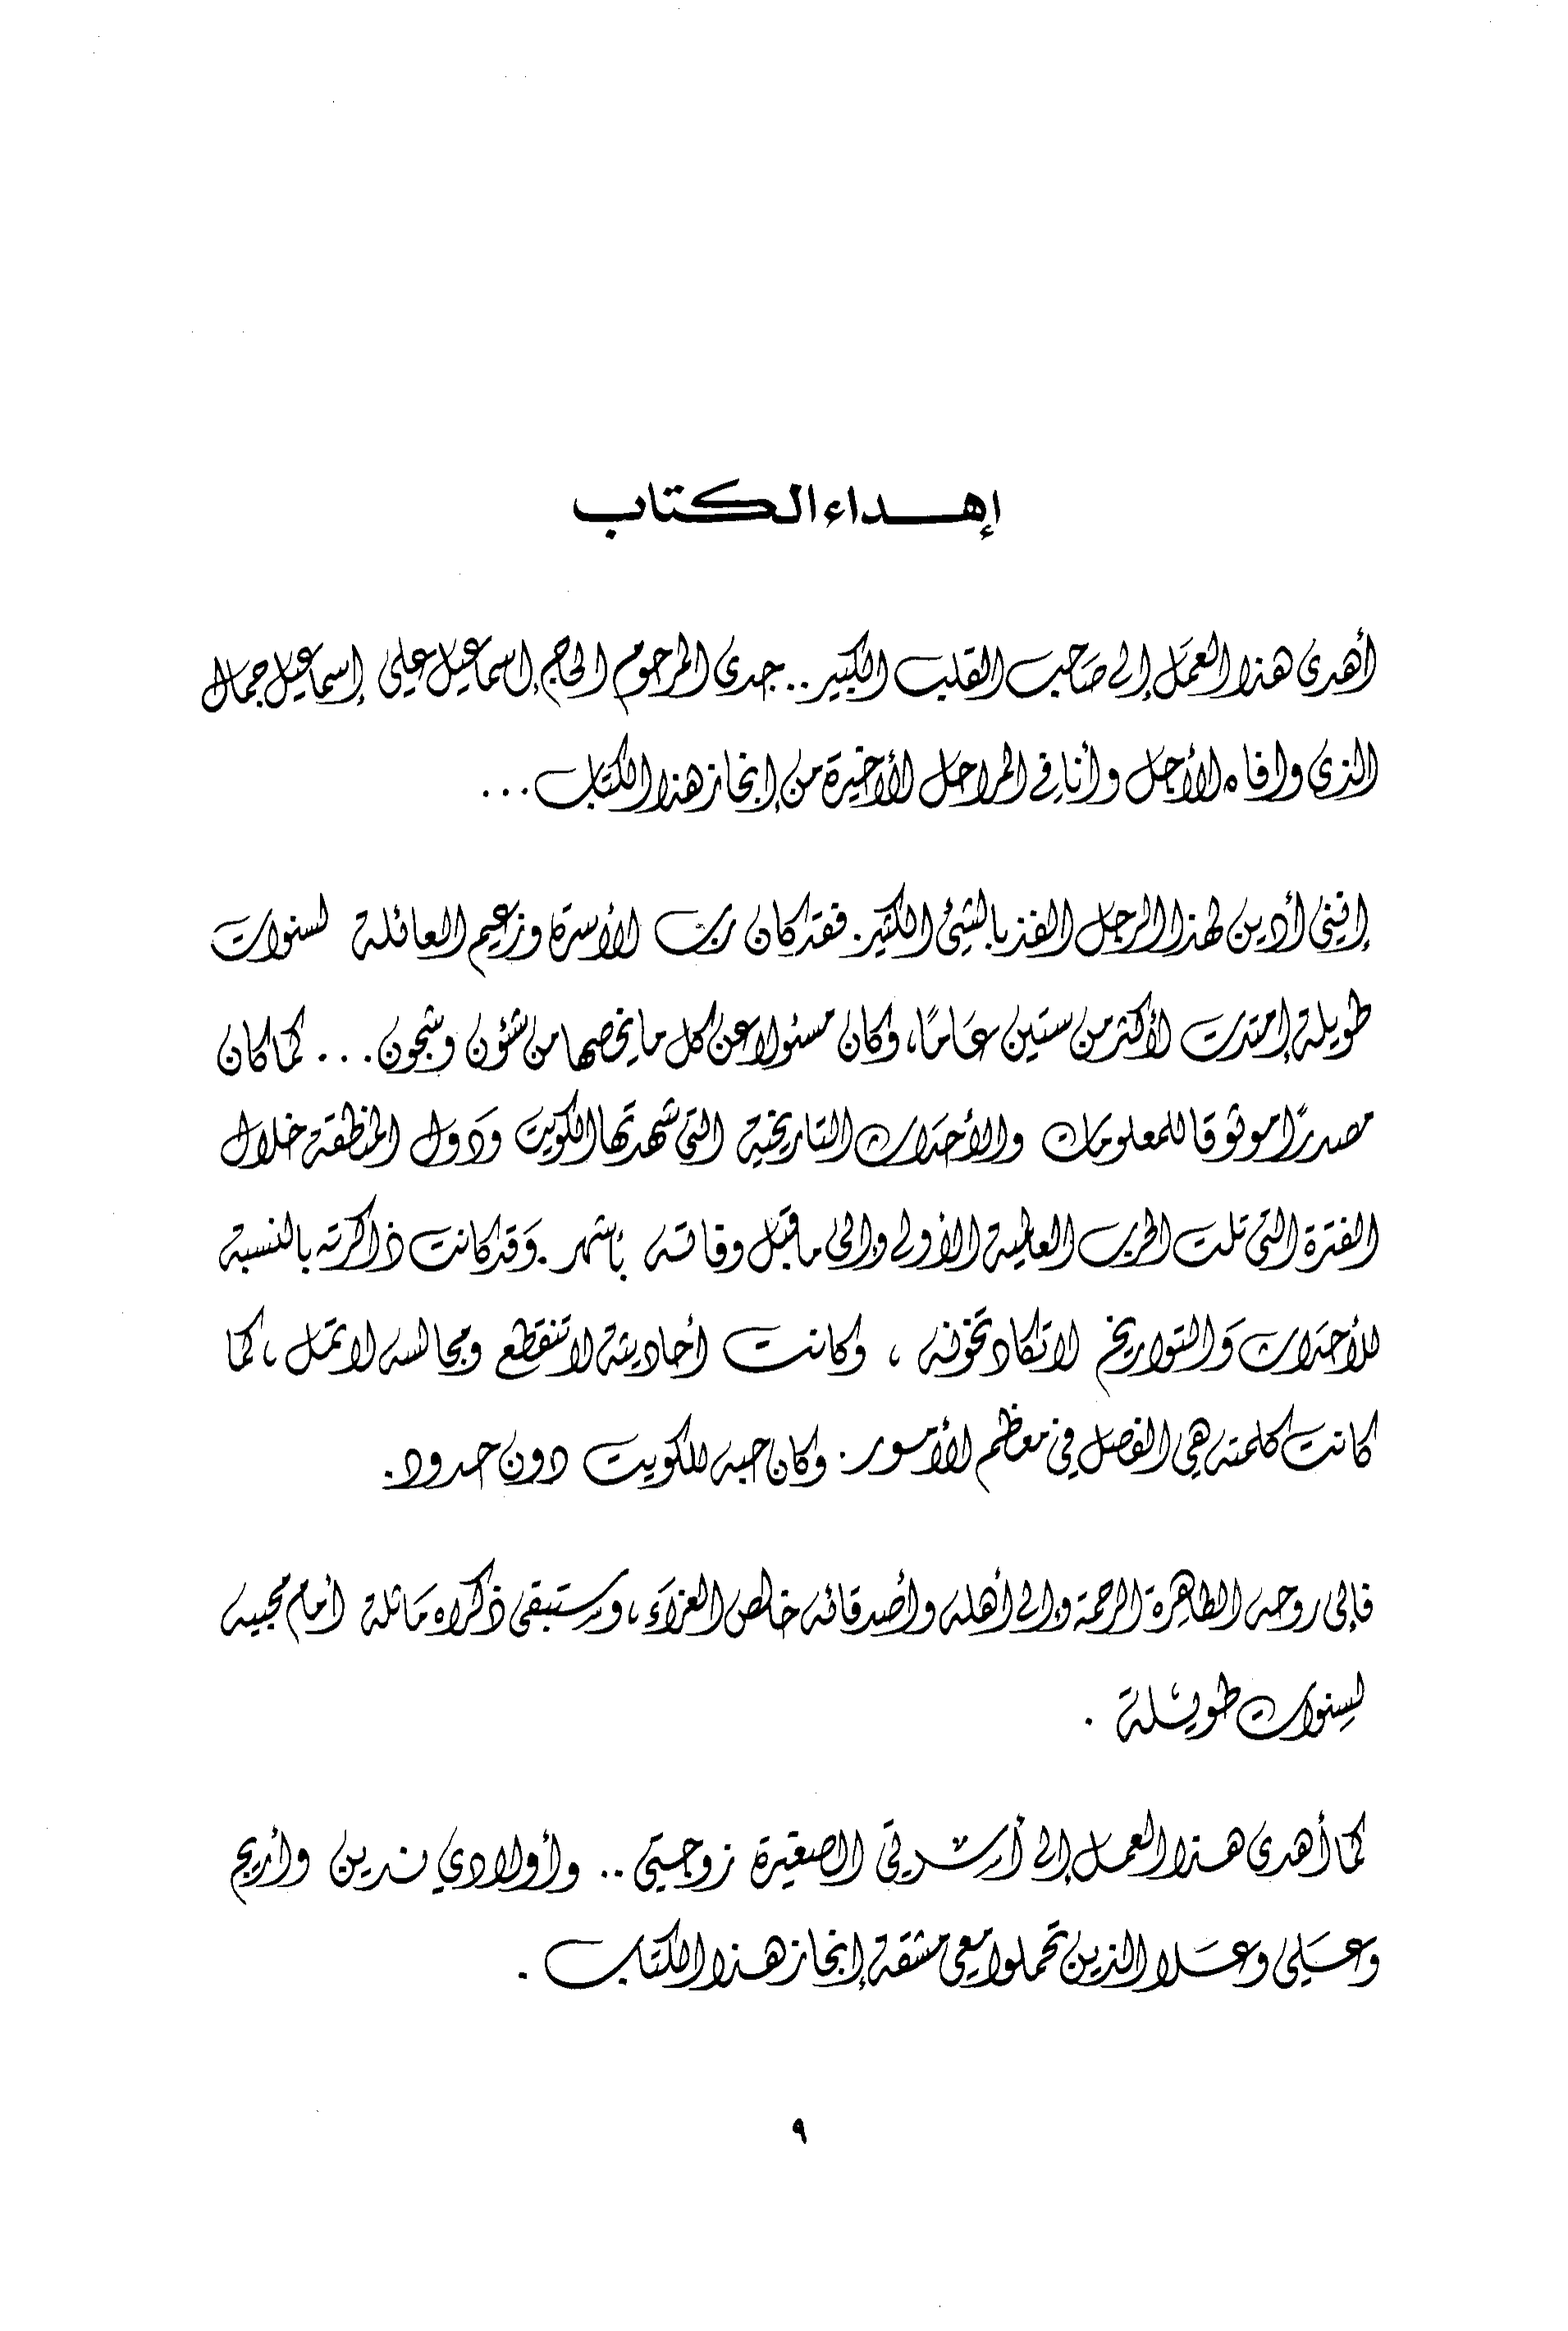 إهداء الكتاب
أهدى هذا العمَل إلى صَاحب القلب الكبير .. جدى المرحوم الحاج إسماعيل علي إسماعيل جمال
الذي وافاه الأجل وأنا في المراحل الأخيرة من إنجاز هذا الكتاب ...
إنني أدين لهذا الرجل الفذ بالشئ الكثير . فقد كان ربّ الأسرة وزعيم العائلة لسنوات
طويلة إمتدت لأكثر من ستين عَامًا، وكان مسئولا عن كل ما يخصها من شئون وشجون ... كما كان
مصدرًا موثوقا للمعلومات والأحدَاث التاريخية التي شهدتها الكويت وَدول المنطقة خلال
الفترة التي تلت الحرب العالمية الأولى وإلى ما قبَل وفاته بأشهر . وَقد كانت ذاكرته بالنسبة
للأحدَاث وَالتواريخ لا تكاد تخونه ، وكانت أحاديثه لا تنقطع ومجالسه لا تمَل ، كما
كانت كلمته هي الفصل في معظم الأمور . وكان حبه للكويت دون حدود .
فإلى روحه الطاهِرة الرحمة وإلى أهله وأصدقائه خالص العزاَء ، وسَتبقى ذكراه مَاثلة أمام محبيه
لسِنوات طويلة .
كما أهدى هذا العمل إلى أسرتي الصغيرة زوجتي .. وأولادي ندين وأريج
وَعَلي وعَلا الذين تحملوا معي مشقة إنجاز هذا الكتاب .
٩